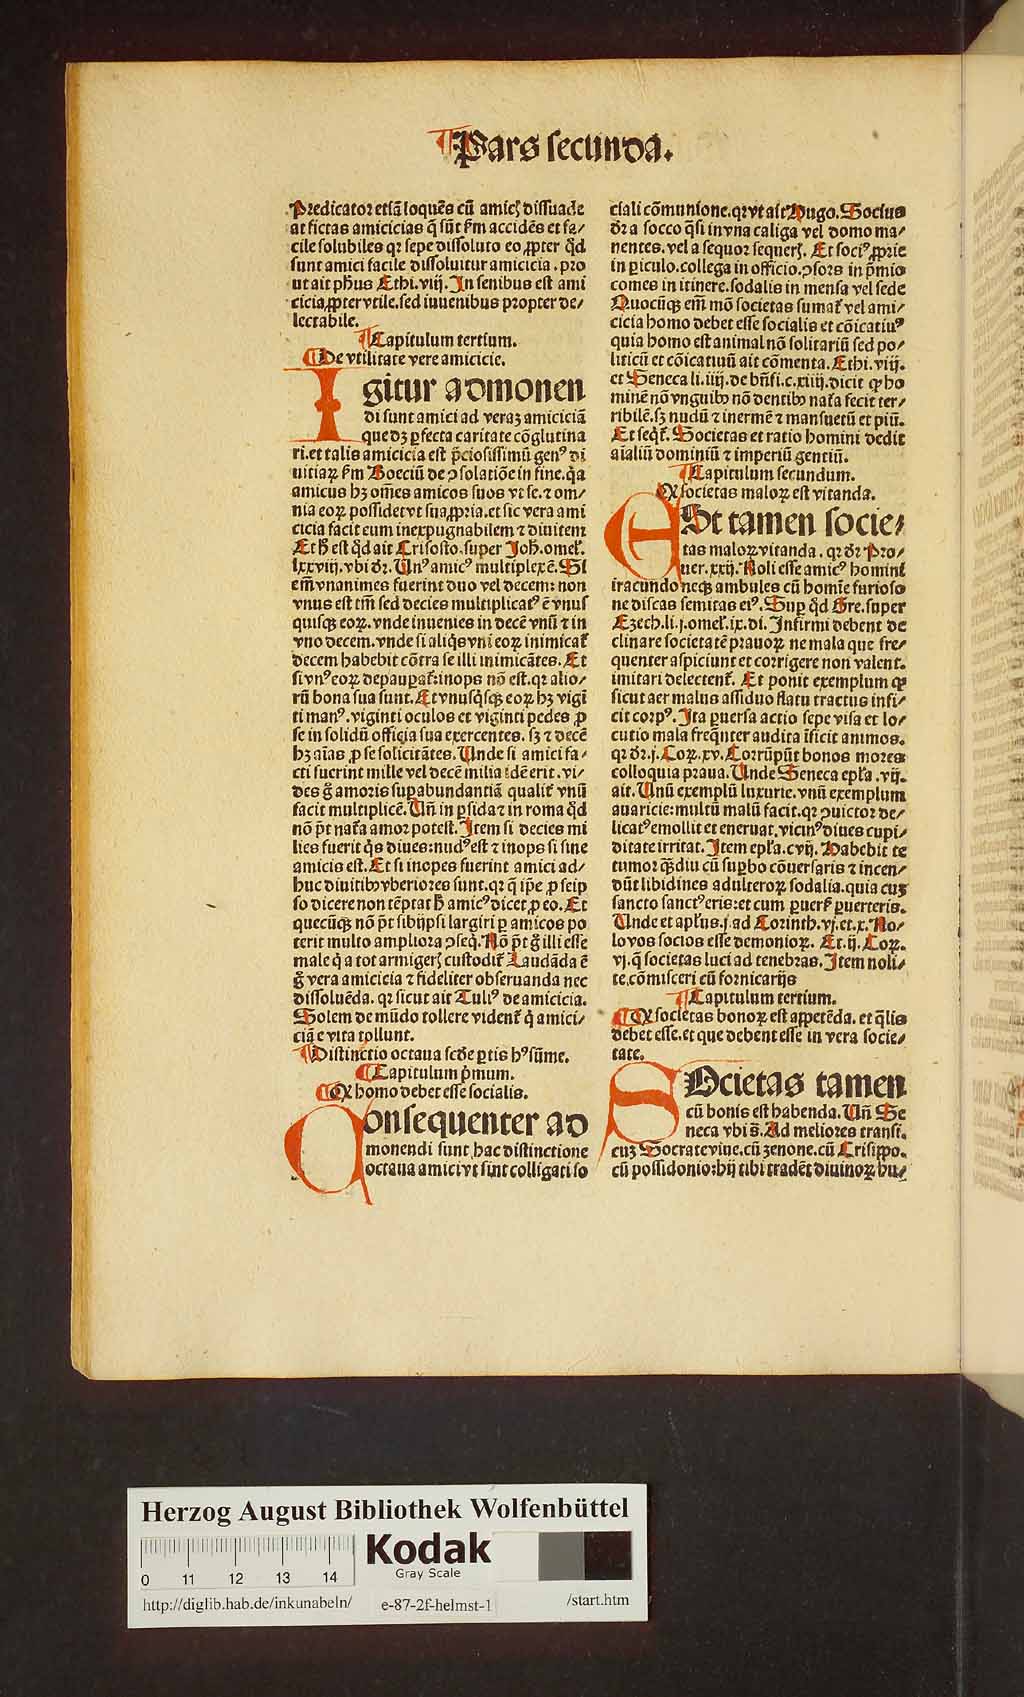 Pars secunda.
Predicator etiā loquēs cū amicꝭ dissuade
at fictas amicicias q̄ sūt ẜm accidēs et fa/
cile solubiles qꝛ sepe dissoluto eo ꝓpter qd̄
sunt amici facile dissoluitur amicicia. pro
ut ait ph̄us Ethi. viij. In senibus est ami
cicia ꝓpter vtile. sed iuuenibus propter de/
lectabile.
Capitulum tertium.
De vtilitate vere amicicie.
Igitur admonen
di sunt amici ad veraꝫ amiciciā
que dꝫ ꝑfecta caritate cōglutina
ri. et talis amicicia est p̄ciosissimū genꝰ di
uitiaꝝ ẜm Boeciū de ꝯsolatiōe in fine. q̇a
amicus hꝫ om̄es amicos suos vt se. ⁊ om/
nia eoꝝ possidet vt sua ꝓpria. et sic vera ami
cicia facit eum inexpugnabilem ⁊ diuitem
Et h̄ est qd̄ ait Crisosto. super Joh̄. omel̄.
lxxviij. vbi dr̄. Unꝰ amicꝰ multiplex ē. Si
em̄ vnanimes fuerint duo vel decem: non
vnus est tm̄ sed decies multiplicatꝰ ē vnus
quisqꝫ eoꝝ. vnde inuenies in decē vnū ⁊ in
vno decem. vnde si aliq̇s vni eoꝝ inimicat̄
decem habebit cōtra se illi inimicātes. Et
si vnꝰ eoꝝ depauꝑat̄: inops nō est. qꝛ alio/
rū bona sua sunt. Et vnusq̇sqꝫ eoꝝ hꝫ vigī
ti manꝰ. viginti oculos et viginti pedes ꝓ
se in solidū officia sua exercentes. sꝫ ⁊ decē
hꝫ aīas ꝓ se solicitātes. Unde si amici fa/
cti fuerint mille vel decē milia idē erit. vi/
des g̊ amoris suꝑabundantiā qualit̄ vnū
facit multiplicē. Uñ in ꝑsida ⁊ in roma qd̄
nō p̄t nat̄a amor potest. Item si decies mi
lies fuerit q̇s diues: nudꝰ est ⁊ inops si sine
amicis est. Et si inopes fuerint amici ad/
huc diuitibꝰ vberiores sunt. qꝛ q̄ ip̄e ꝓ seip
so dicere non tēptat h̄ amicꝰ dicet ꝓ eo. Et
quecūqꝫ nō p̄t sibijpsi largiri ꝑ amicos po
terit multo ampliora ꝯseq̇. Nō p̄t g̊ illi esse
male q̇ a tot armigerꝭ custodit̄ Laudāda ē
g̊ vera amicicia ⁊ fideliter obseruanda nec
dissoluēda. qꝛ sicut ait Tuliꝰ de amicicia.
Solem de mūdo tollere vident̄ q̇ amici/
ciā e vita tollunt.
Distinctio octaua scd̄e ꝑtis hꝰ sūme.
Capitulum p̄mum.
Ꝙ homo debet esse socialis.
Consequenter ad
monendi sunt hac distinctione
octaua amici vt sint colligati so
ciali cōmunione. qꝛ vt ait Hugo. Socius
dr̄ a socco q̄si in vna caliga vel domo ma/
nentes. vel a sequor sequerꝭ. Et sociꝰ ꝓprie
in ꝑiculo. collega in officio. ꝯsors in p̄mio
comes in itinere. sodalis in mensa vel sede
Quocūqꝫ em̄ mō societas sumat̄ vel ami/
cicia homo debet esse socialis et cōicatiuꝰ
quia homo est animal nō solitariū sed po/
liticū et cōicatiuū ait cōmenta. Ethi. viij.
et Seneca li. iiij. de bn̄fi. c. xiiij. dicit ꝙ ho
minē nō vnguibꝰ nō dentibꝰ nat̄a fecit ter/
ribilē. sꝫ nudū ⁊ inermē ⁊ mansuetū et piū.
Et seqt̄. Societas et ratio homini dedit
aīaliū dominiū ⁊ imperiū gentiū.
Capitulum secundum.
Ꝙ societas maloꝝ est vitanda.
ESt tamen socie/
tas maloꝝ vitanda. qꝛ dr̄ Pro/
uer. xxij. Noli esse amicꝰ homini
iracundo neqꝫ ambules cū homīe furioso
ne discas semitas eiꝰ. Suꝑ qd̄ Gre. super
Ezech. li. j. omel̄. ix. di. Infirmi debent de
clinare societatē prauoꝝ ne mala que fre/
quenter aspiciunt et corrigere non valent.
imitari delectent̄. Et ponit exemplum ꝙ
sicut aer malus assiduo flatu tractus infi/
cit corpꝰ. Ita ꝑuersa actio sepe visa et lo/
cutio mala freq̄nter audita īficit animos.
qꝛ dr̄. j. Coꝝ. xv. Corrūpūt bonos mores
colloquia praua. Unde Seneca epl̄a. vij.
ait. Unū exemplū luxurie. vnū exemplum
auaricie: multū malū facit. qꝛ ꝯuictor de/
licatꝰ emollit et eneruat. vicinꝰ diues cupi/
ditate irritat. Item epl̄a. cvij. Habebit te
tumor q̄ꝫdiu cū suꝑbo cōuersaris ⁊ incen/
dūt libidines adulteroꝝ sodalia. quia cuꝫ
sancto sanctꝰ eris: et cum ꝑuers̄ ꝑuerteris.
Unde et apl̄us. j. ad Corinth. vj. et. x. No/
lo vos socios esse demonioꝝ. Et. ij. Coꝝ.
vj. q̄ societas luci ad tenebras. Item noli/
te. cōmisceri cū fornicarijs
Capitulum tertium.
Ꝙ societas bonoꝝ est appetēda. et q̄lis
debet esse. et que debent esse in vera socie/
tate.
SOcietas tamen
cū bonis est habenda. Uñ Se
neca vbi s̄. Ad meliores transi.
cuꝫ Socrate viue. cū zenone. cū Crisippo.
cū possidonio: hij tibi tradēt diuinoꝝ hu/
Herzog August Bibliothek Wolfenbüttel
Kodak
Gray Scale
0 11 12 13 14
http://diglib.hab.de/inkunabeln/ e-87-2f-helmst-1 /start.htm